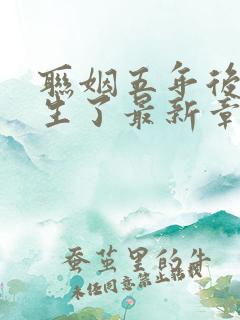 聯姻五年後
生了最新章
蚕茧里的牛
未经同意禁止转载